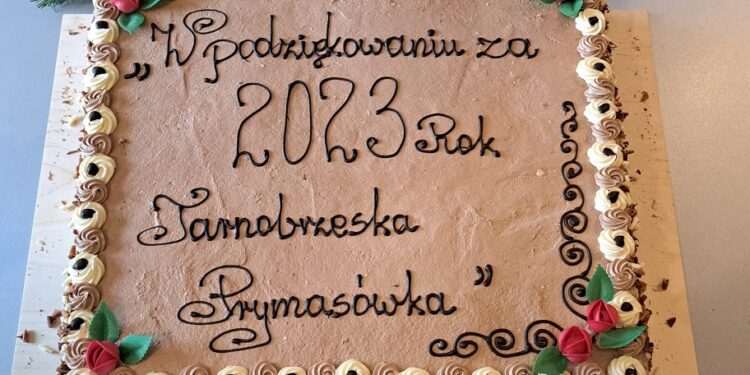 „W podziękowaniu za
2023 Rok
Tarnobrzeska
Prymasówka”